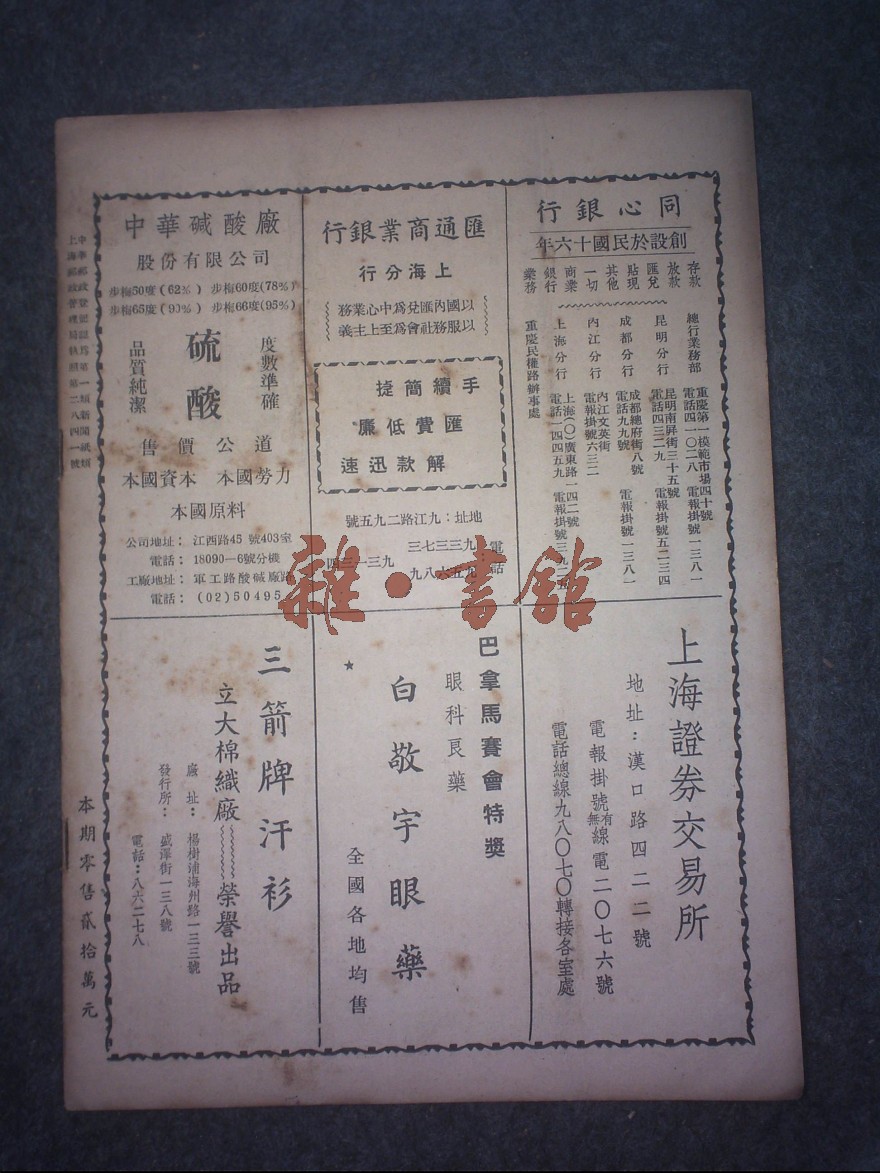 同心銀行
創設於民國十六年
存款
放款
匯兌
貼現
其他
一切
商業
銀行
業務
總行業務部 重慶第一模範市場四十號
電話四一〇二八 電報掛號一三八一
昆明分行 昆明南屏街三十五號
電話四三二一九 電報掛號五二三四
成都分行 成都總府街八號
電話九九號 電報掛號一三八一
內江分行 內江文英街
電報掛號六三二
上海分行 上海(〇)廣東路一四二號
電話一四四五九 電報掛號
重慶民權路辦事處
匯通商業銀行
上海分行
以國內匯兌爲中心業務
以服務社會爲至上主義
手續簡捷
匯費低廉
解款迅速
地址:九江路二九五號
電話
中華碱酸廠
股份有限公司
步梅50度(62%) 步梅60度(78%)
步梅65度(90%) 步梅66度(95%)
度數準確
硫酸
品質純潔
售價公道
本國資本 本國勞力
本國原料
公司地址: 江西路45號403室
電話: 18090—6號分機
工廠地址: 軍工路酸碱廠路
電話: (02)50495
上海證券交易所
地址:漢口路四二二號
電報掛號有無線電二〇七六號
電話總線九八〇七〇轉接各室處
巴拿馬賽會特獎
眼科良藥
白敬宇眼藥
★
全國各地均售
三箭牌汗衫
立大棉織廠 榮譽出品
廠址: 楊樹浦海州路一三三號
發行所: 盛澤街一三八號
電話:八六二七八
中華郵政登記認爲第一類新聞紙類
上海郵政管理局執照第二八四一號
本期零售貳拾萬元
雜·書館